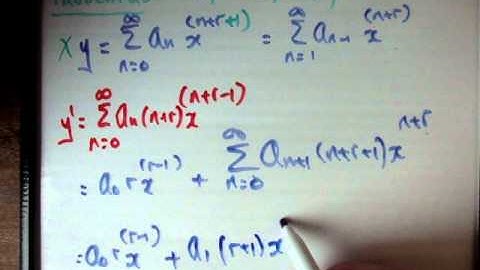 xy = ∑_{n=0}^{∞} a_n x^{(n+r+1)} = ∑_{n=1}^{∞} a_{n-1} x^{(n+r)}
y' = ∑_{n=0}^{∞} a_n (n+r) x^{(n+r-1)}
= a_0 r x^{(r-1)} + ∑_{n=0}^{∞} a_{n+1} (n+r+1) x^{n+r}
= a_0 r x^{(r-1)} + a_1 (r+1) x